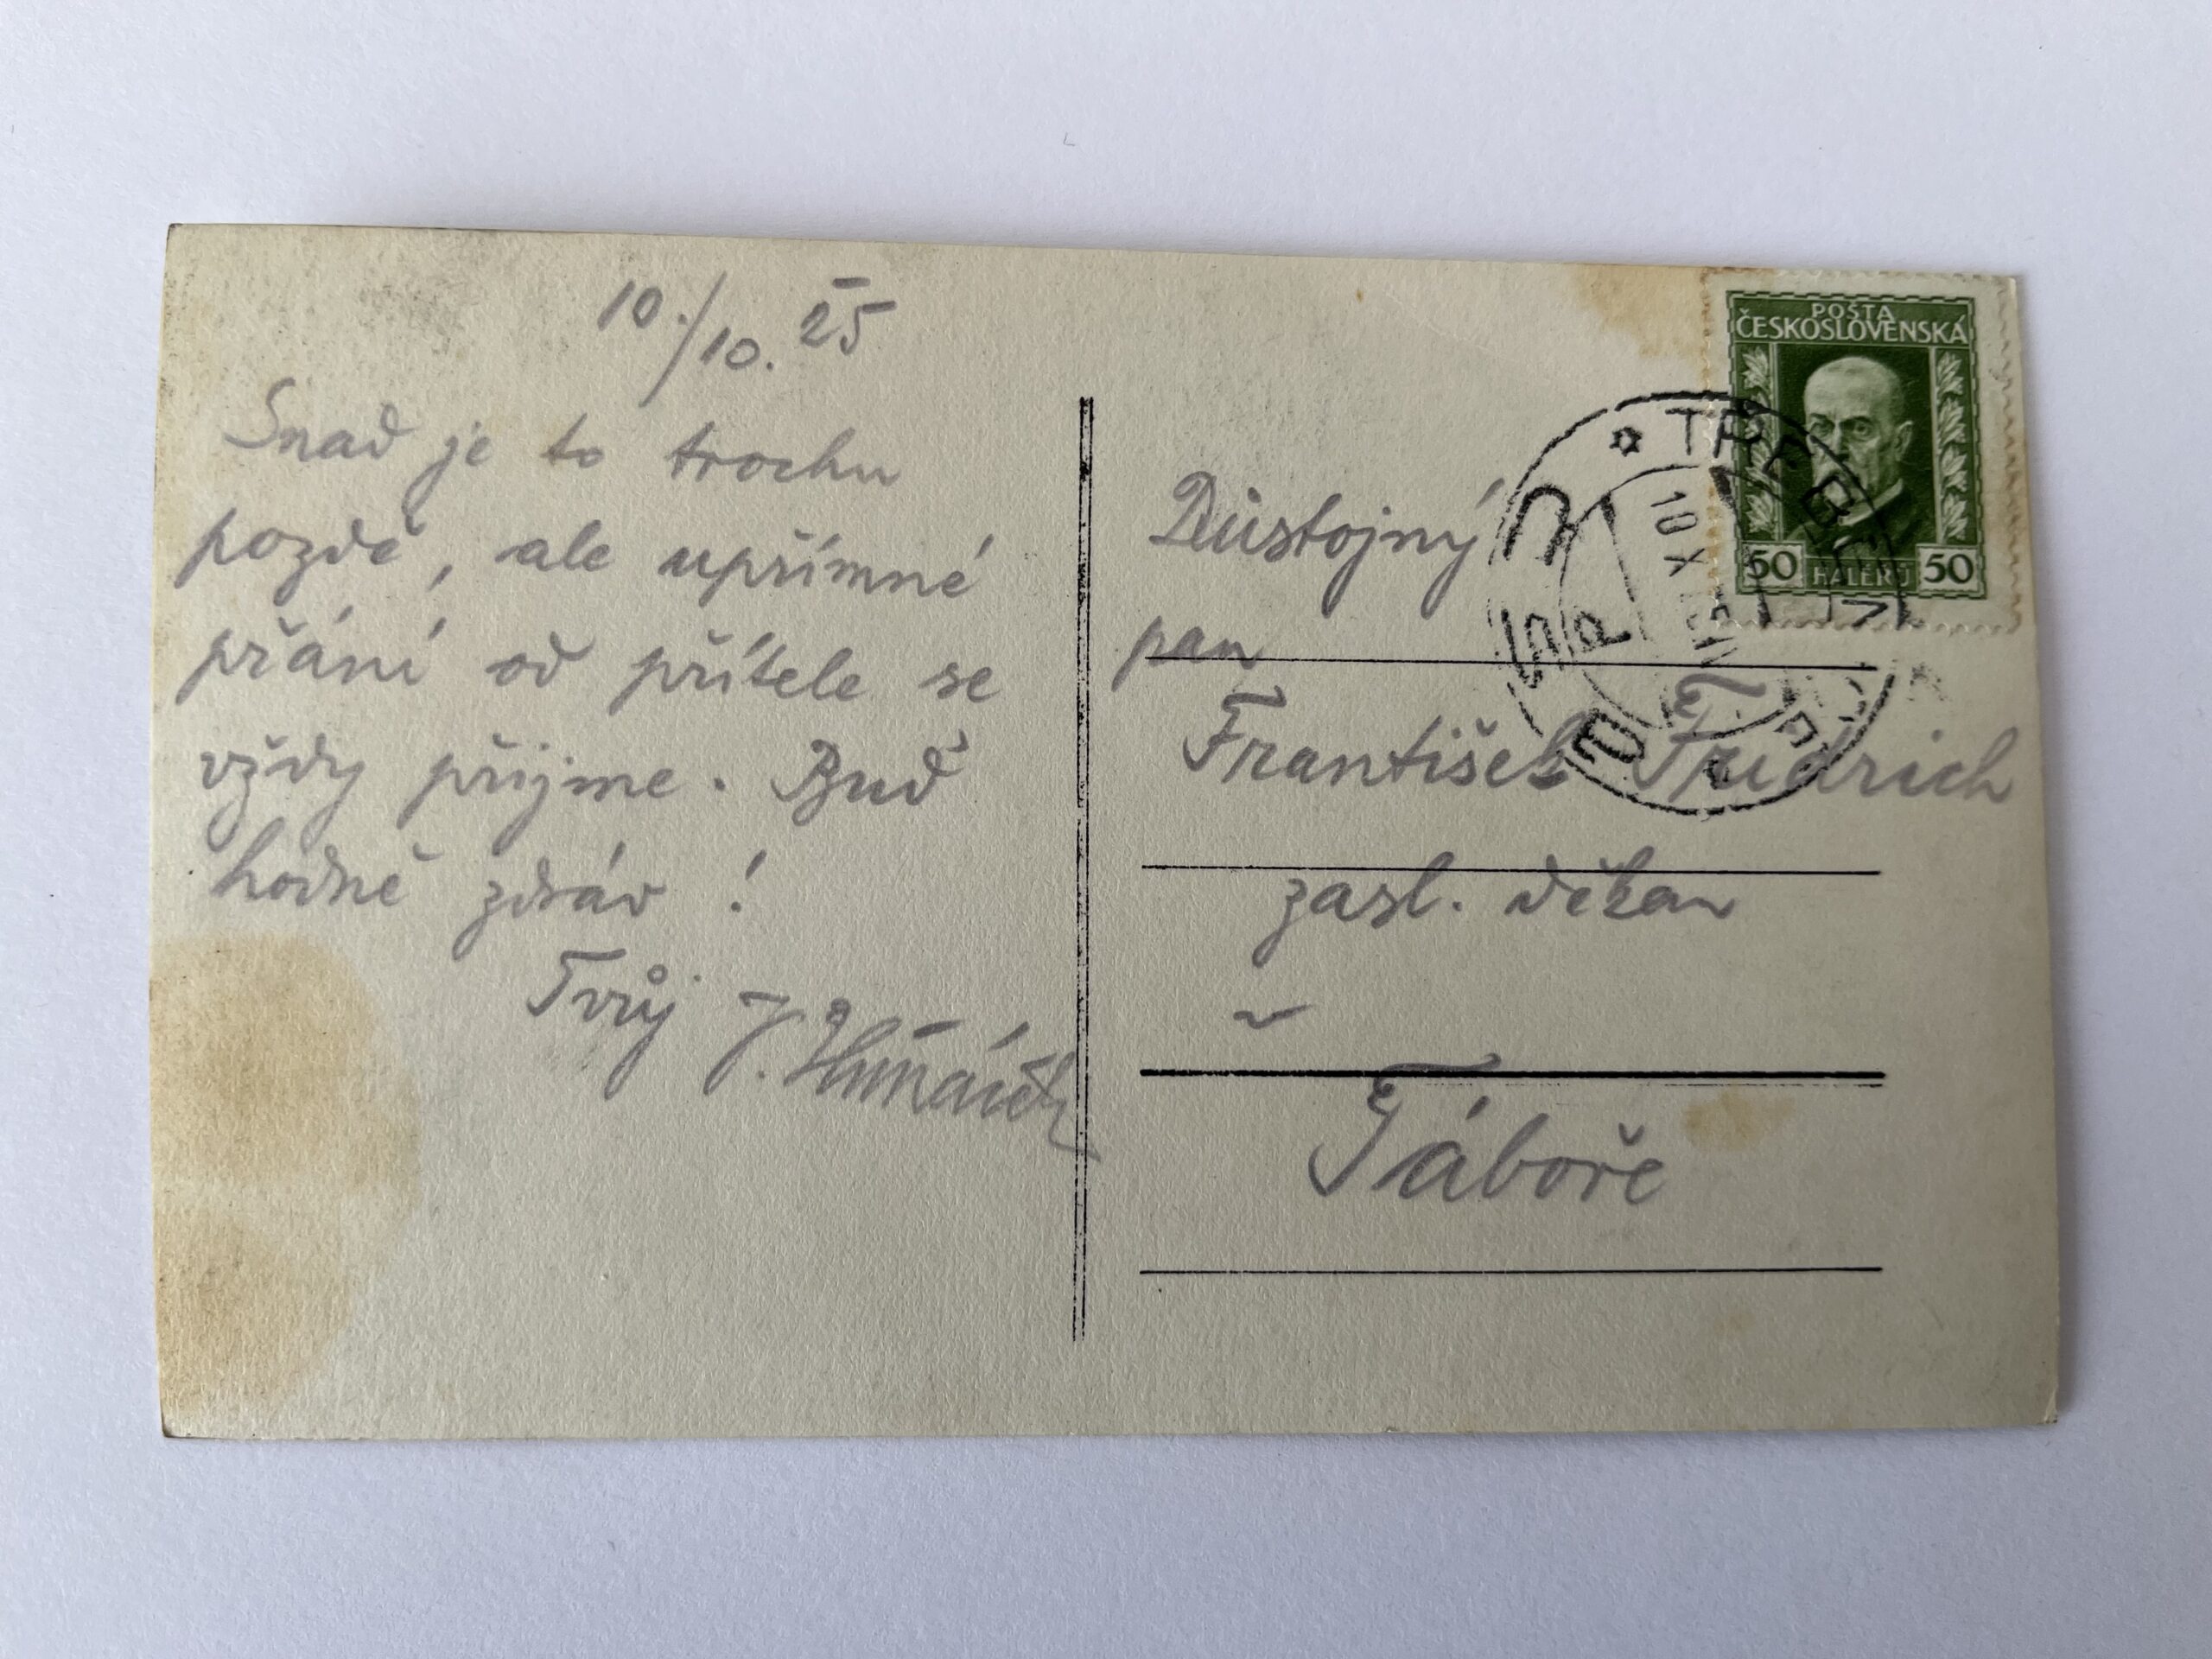 10./10. 25
Snad je to trochu
pozdě, ale upřímné
přání od přítele se
vždy přijme. Buď
hodně zdráv!
Tvůj J.
POŠTA
ČESKOSLOVENSKÁ
50 HALÉŘŮ 50
Důstojný
pan
František Fridrich
zasl. děkan
v
Táboře